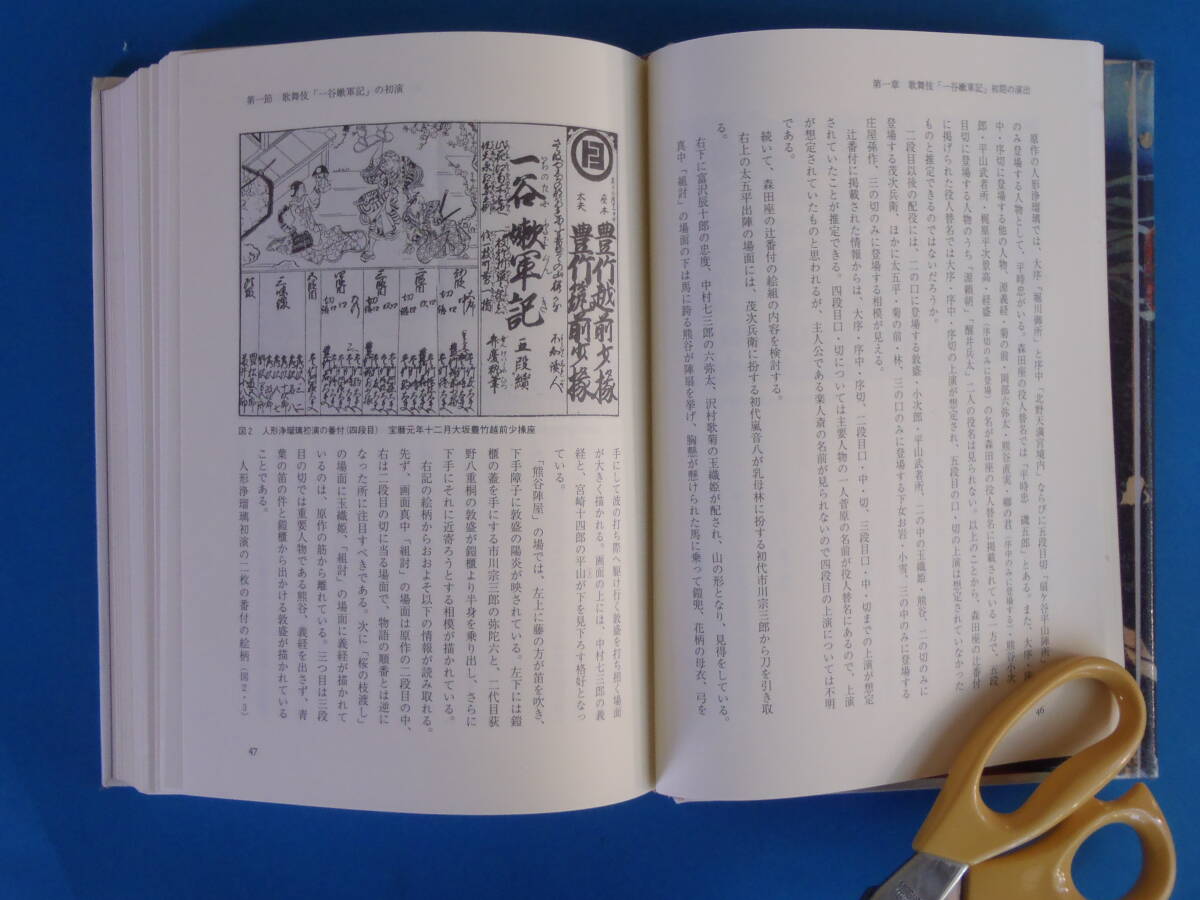 第一章　歌舞伎「一谷嫩軍記」初期の演出
原作の人形浄瑠璃では、大序「堀川御所」と序中「北野天満宮境内」、ならびに五段目切「扇ヶ谷平山陣所」
のみ登場する人物として、平時忠がいる。森田座の役人替名では「平時忠　磯五郎」とある。また、大序・序
中・序切に登場する他の人物、源義経・菊の前・岡部六弥太・熊谷直実・卿の君（序中のみに登場する）・熊谷小次
郎・平山武者所・梶原平次景高・経盛（序切のみに登場）の名が森田座の役人替名に掲載されている一方で、五段
目切に登場する人物のうち「源頼朝」「醒井兵太」二人の役名は見られない。以上のことから、森田座の辻番付
に掲げられた役人替名では大序・序中・序切の上演が想定され、五段目の口・切の上演は想定されていなかった
ものと推定できるのではないだろうか。
二段目以後の配役には、二の口に登場する敦盛・小次郎・平山武者所、二の中の玉織姫・熊谷、二の切のみに
登場する茂次兵衛、ほかに太五平・菊の前・林、三の口のみに登場する下女お岩・小雪、三の中のみに登場する
庄屋孫作、三の切のみに登場する相模が見える。
辻番付に掲載された情報からは、大序・序中・序切、二段目口・中・切、三段目口・中・切までの上演が想定
されていたことが推定できる。四段目口・切については主要人物の一人菅原の名前が役人替名にあるので、上演
が想定されていたものと思われるが、主人公である楽人斎の名前が見られないので四段目の上演については不明
である。
続いて、森田座の辻番付の絵組の内容を検討する。
右上の太五平出陣の場面には、茂次兵衛に扮する初代嵐音八が乳母林に扮する初代市川宗三郎から刀を引き取
る。
右下に富沢辰十郎の忠度、中村七三郎の六弥太、沢村歌菊の玉織姫が配され、山の形となり、見得をしている。
真中「組討」の場面の下は馬に跨る熊谷が陣扇を挙げ、胸懸が懸けられた馬に乗って鎧兜、花柄の母衣、弓を
46
第一節　歌舞伎「一谷嫩軍記」の初演
座本　豊竹越前少掾
太夫　豊竹筑前少掾
一谷嫩軍記
五段續
図2　人形浄瑠璃初演の番付（四段目）　宝暦元年十二月大坂豊竹越前少掾座
手にして波の打ち際へ駆け行く敦盛を打ち招く場面
が大きく描かれる。画面の上には、中村七三郎の義
経と、宮崎十四郎の平山が下を見下ろす格好となっ
ている。
「熊谷陣屋」の場では、左上に藤の方が笛を吹き、
下手障子に敦盛の陽炎が映されている。左下には鎧
櫃の蓋を手にする市川宗三郎の弥陀六と、二代目荻
野八重桐の敦盛が鎧櫃より半身を乗り出し、さらに
下手にそれに近寄ろうとする相模が描かれている。
右記の絵柄からおおよそ以下の情報が読み取れる。
先ず、画面真中「組討」の場面は原作の二段目の中、
右は二段目の切に当る場面で、物語の順番とは逆に
なった所に注目すべきである。次に「桜の枝渡し」
の場面に玉織姫、「組討」の場面に義経が描かれて
いるのは、原作の筋から離れている。三つ目は三段
目の切では重要人物である熊谷、義経を出さず、青
葉の笛の件と鎧櫃から出かける敦盛が描かれている
ことである。
人形浄瑠璃初演の二枚の番付の絵柄（図2・3）
47